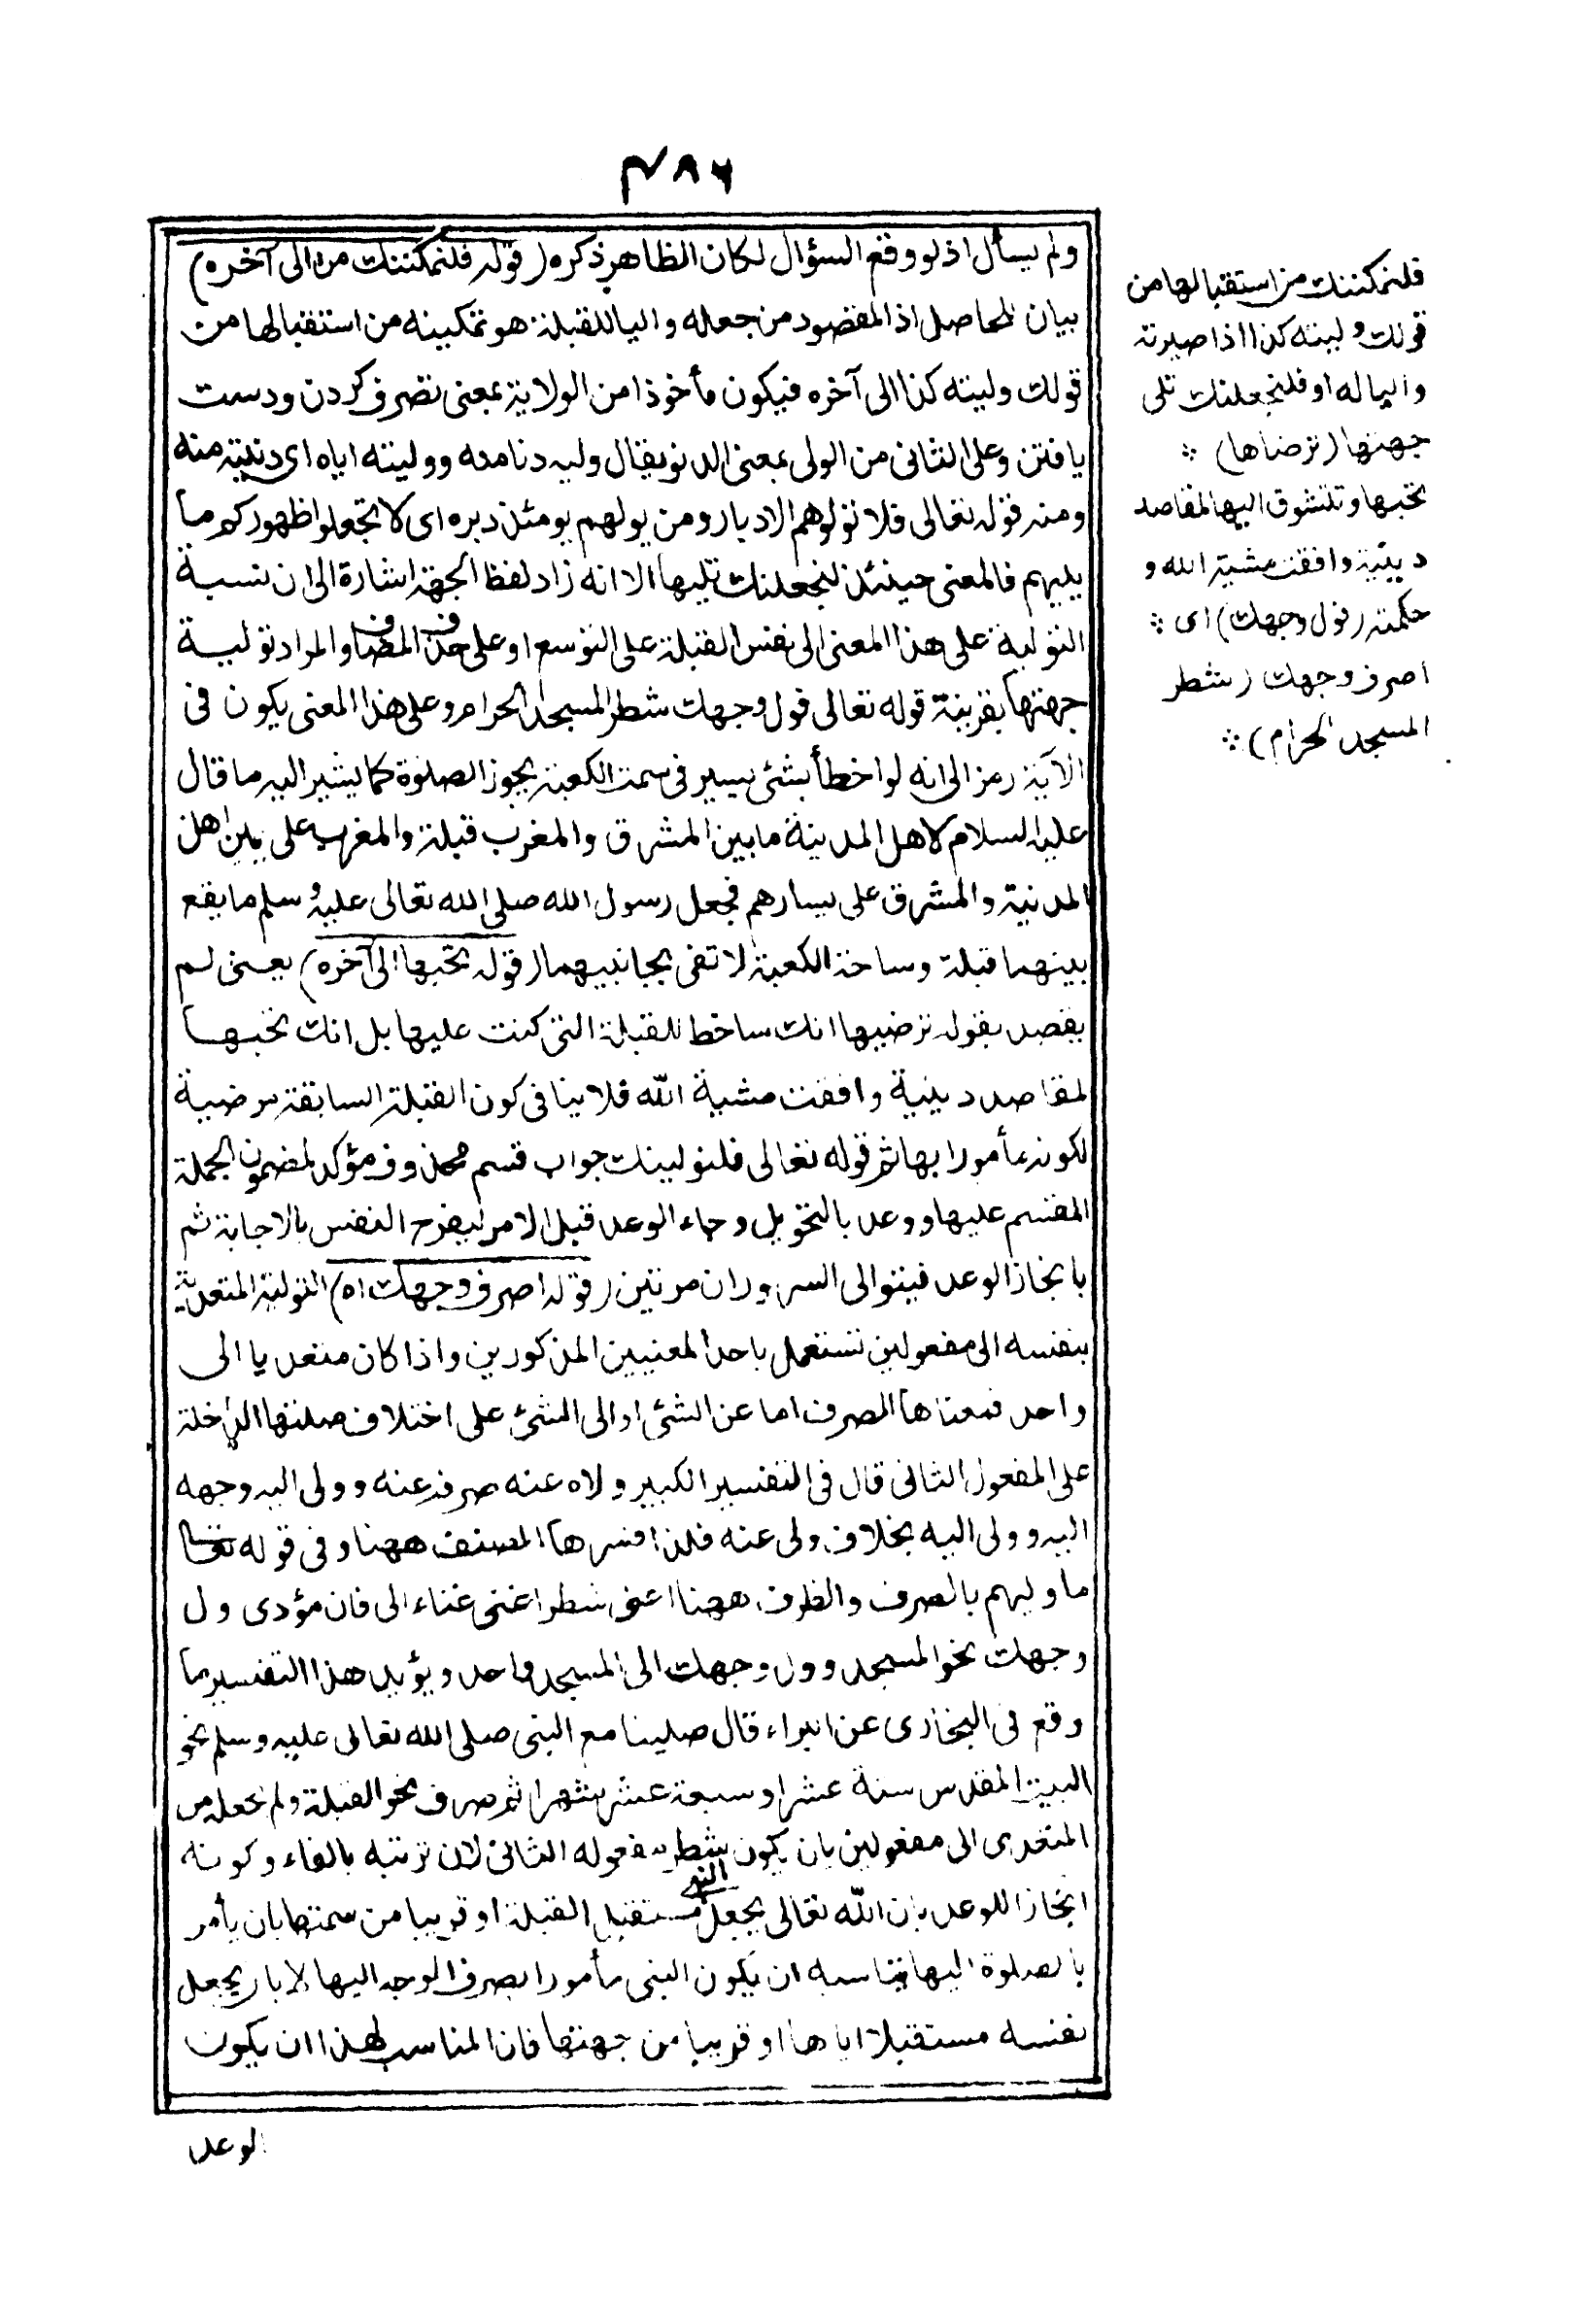 ۴۸۶
ولم يسأل اذ لو وقع السؤال لكان الظاهر ذكره (قوله فلنمكننك من الى آخره)
بيان لحاصل اذ المقصود من جعله واليا للقبلة هو تمكينه من استقبالها من
قولك وليته كذا الى آخره فيكون مأخوذا من الولاية بمعنى تصرف كردن ودست
يافتن وعلى الثانى من الولى بمعنى الدنو يقال وليه دنا منه ووليته اياه اى دنيته منه
ومنه قوله تعالى فلا تولوهم الادبار ومن يولهم يومئذ دبره اى لا تجعلوا ظهوركم مما
يليهم فالمعنى حينئذ لنجعلنك تليها الا انه زاد لفظ الجهة اشارة الى ان نسبة
التولية على هذا المعنى الى نفس القبلة على التوسع او على حذف المضاف والمراد تولية
جهتها بقرينة قوله تعالى فول وجهك شطر المسجد الحرام وعلى هذا المعنى يكون فى
الآية رمز الى انه لو اخطأ بشئ يسير فى سمت الكعبة يجوز الصلوة كما يشير اليه ما قال
عليه السلام لاهل المدينة ما بين المشرق والمغرب قبلة والمغرب على يمين اهل
المدينة والمشرق على يسارهم فجعل رسول الله صلى الله تعالى عليه وسلم ما يقع
بينهما قبلة وساحة الكعبة لا تفى بجانبيهما (قوله تحبها الى آخره) يعنى لم
يقصد بقوله ترضيها انك ساخط للقبلة التى كنت عليها بل انك تحبها
لمقاصد دينية وافقت مشية الله فلا ينافى كون القبلة السابقة مرضية
لكونه مأمورا بها ثم قوله تعالى فلنولينك جواب قسم محذوف مؤكد لمضمون الجملة
المقسم عليها ووعد بالتحويل وجاء الوعد قبل الامر ليفرح النفس بالاجابة ثم
بانجاز الوعد فيتوالى السروران مرتين (قوله اصرف وجهك اه) التولية المتعدية
بنفسه الى مفعولين تستعمل باحد المعنيين المذكورين واذا كان متعديا الى
واحد فمعناها الصرف اما عن الشئ او الى الشئ على اختلاف صلتها الداخلة
على المفعول الثانى قال فى التفسير الكبير ولاه عنه صرفه عنه وولى اليه وجهه
اليه وولى اليه بخلاف ولى عنه فلذا فسرها المصنف ههنا وفى قوله تعالى
ما وليهم بالصرف والظرف ههنا اعنى شطر اغنى غناء الى فان مؤدى ول
وجهك نحو المسجد وول وجهك الى المسجد واحد ويؤيد هذا التفسير ما
وقع فى البخارى عن البراء قال صلينا مع النبى صلى الله تعالى عليه وسلم نحو
البيت المقدس ستة عشر او سبعة عشر شهرا ثم صرف نحو القبلة ولم نجعله من
المتعدى الى مفعولين بان يكون شطر مفعوله الثانى لان ترتبه بالفاء وكونه
انجازا للوعد بان الله تعالى يجعل النبى مستقبل القبلة او قريبا من سمتها بان يأمر
بالصلوة اليها يناسبه ان يكون النبى مأمورا بصرف الوجه اليها لا بان يجعل
نفسه مستقبلا اياها او قريبا من جهتها فان المناسب لهذا ان يكون
الوعد
فلنمكننك من استقبالها من
قولك وليته كذا اذا صيرته
واليا له او فلنجعلنك تلى
جهتها (ترضاها) ∴
تحبها وتتشوق اليها لمقاصد
دينية وافقت مشية الله و
حكمته (فول وجهك) اى ∴
اصرف وجهك (شطر
المسجد الحرام) ∴